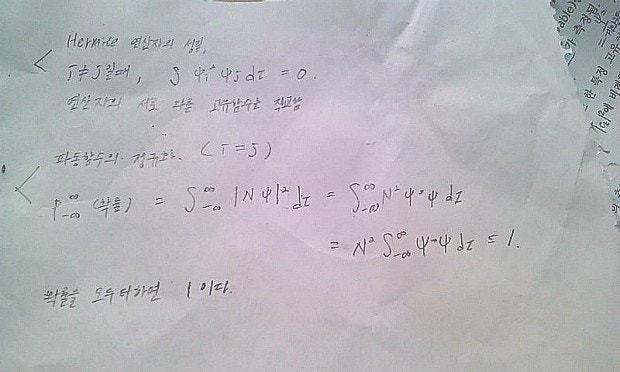 Hermite 연산자의 성질,
i≠j일때, ∫ψi*ψj dτ = 0.
연산자의 서로 다른 고유함수는 직교함
파동함수의 정규화. (i=j)
P_{-∞}^{∞} (확률) = ∫_{-∞}^{∞} |Nψ|² dτ = ∫_{-∞}^{∞} N² ψ*ψ dτ
= N² ∫_{-∞}^{∞} ψ*ψ dτ = 1.
확률을 모두 더하면 1이다.
able)
측정될
특정 고유